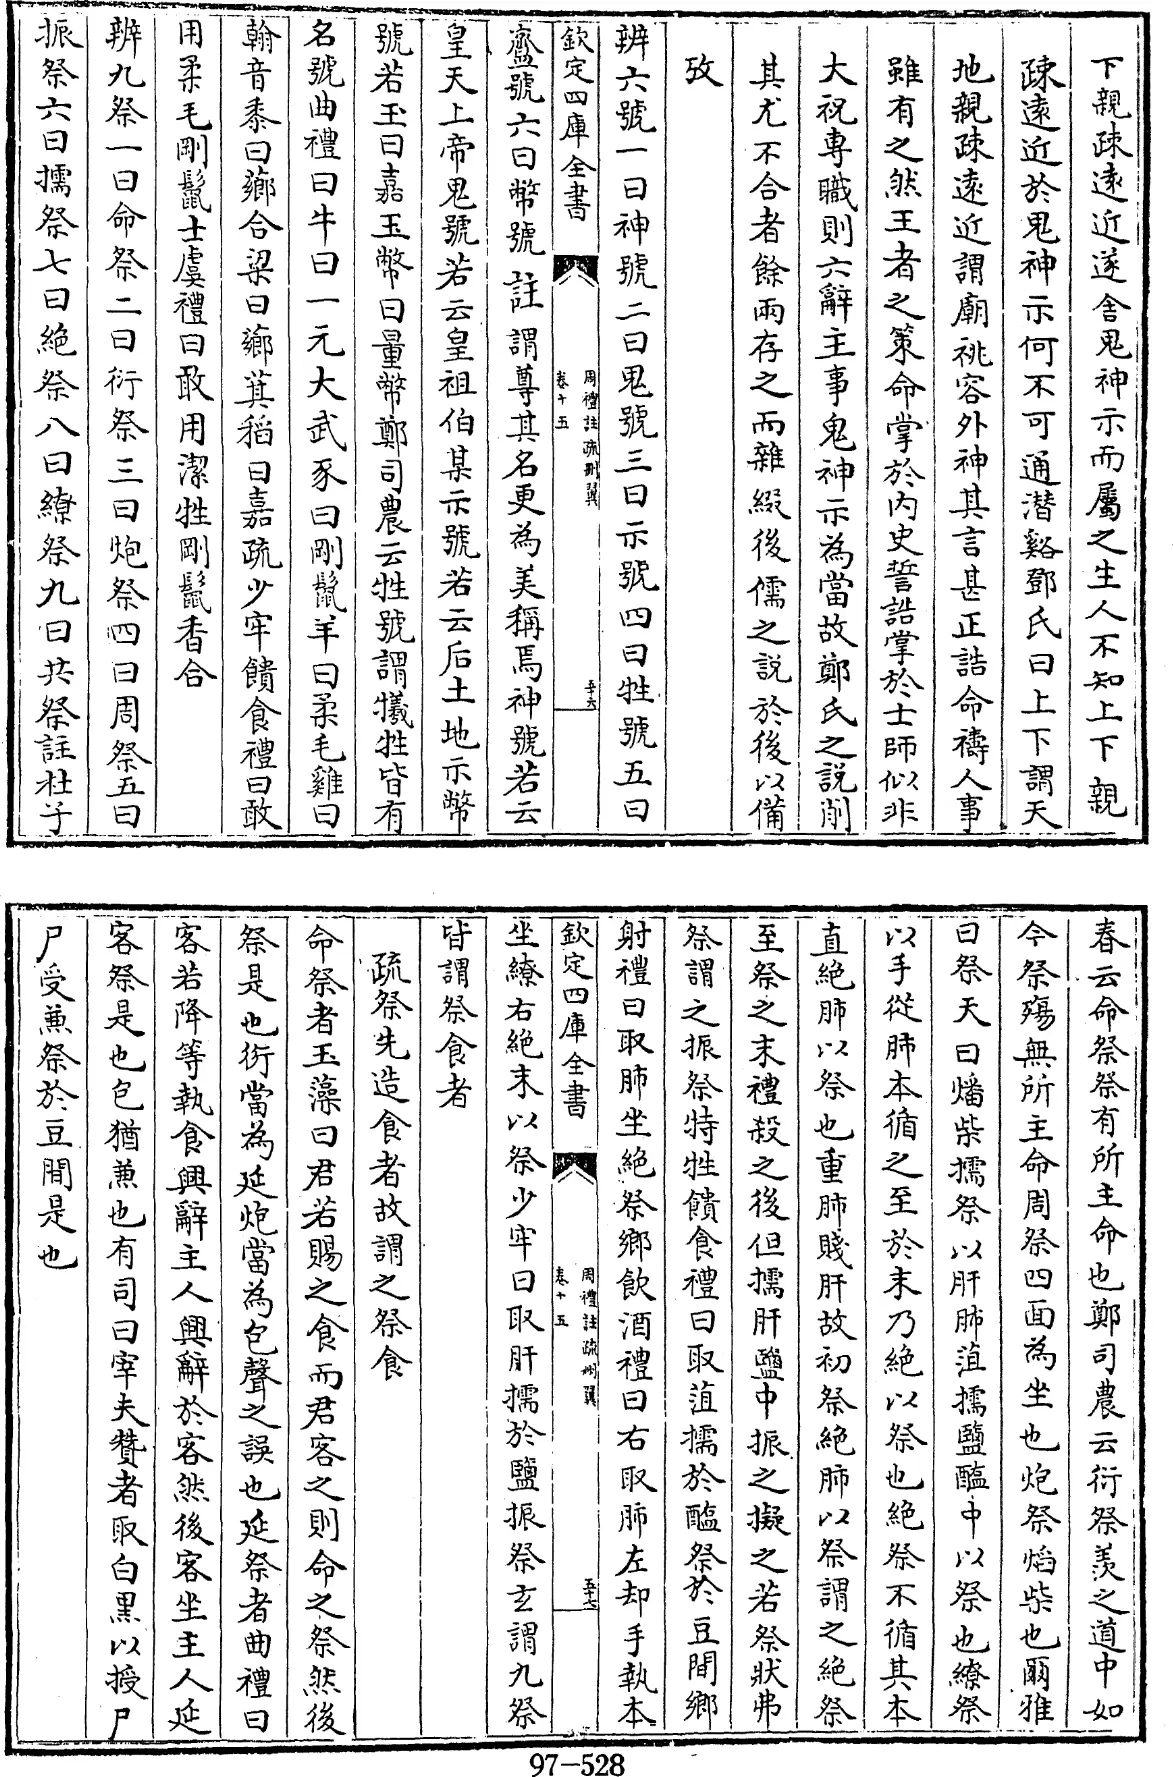 下親疎逺近遂舍鬼神示而屬之生人不知上下親
疎逺近於鬼神示何不可通潜谿鄧氏曰上下謂天
地親疎逺近謂廟祧容外神其言甚正誥命禱人事
雖有之然王者之策命掌於内史誓誥掌於士師似非
大祝専職則六辭主事鬼神示為當故鄭氏之説削
其尤不合者餘兩存之而雜綴後儒之説於後以備
攷
辨六號一曰神號二曰鬼號三曰示號四曰牲號五曰
欽定四庫全書
周禮註疏刪翼
卷十五
五十六
齍號六曰幣號 註謂尊其名更為美稱焉神號若云
皇天上帝鬼號若云皇祖伯某示號若云后土地示幣
號若玉曰嘉玉幣曰量幣鄭司農云牲號謂犧牲皆有
名號曲禮曰牛曰一元大武豕曰剛鬛羊曰柔毛雞曰
翰音黍曰薌合粱曰薌萁稻曰嘉疏少牢饋食禮曰敢
用柔毛剛鬛士虞禮曰敢用潔牲剛鬛香合
辨九祭一曰命祭二曰衍祭三曰炮祭四曰周祭五曰
振祭六曰擩祭七曰絶祭八曰繚祭九曰共祭註杜子
春云命祭祭有所主命也鄭司農云衍祭羨之道中如
今祭殤無所主命周祭四面為坐也炮祭燔柴也爾雅
曰祭天曰燔柴擩祭以肝肺菹擩鹽醢中以祭也繚祭
以手從肺本循之至於末乃絶以祭也絶祭不循其本
直絶肺以祭也重肺賤肝故初祭絶肺以祭謂之絶祭
至祭之末禮殺之後但擩肝鹽中振之擬之若祭狀弗
祭謂之振祭特牲饋食禮曰取菹擩於醢祭於豆間鄉
射禮曰取肺坐絶祭鄉飲酒禮曰右取肺左却手執本
欽定四庫全書
周禮註疏刪翼
卷十五
五十七
坐繚右絶末以祭少牢曰取肝擩於鹽振祭玄謂九祭
皆謂祭食者
疏祭先造食者故謂之祭食
命祭者玉藻曰君若賜之食而君客之則命之祭然後
祭是也衍當為延炮當為包聲之誤也延祭者曲禮曰
客若降等執食興辭主人興辭於客然後客坐主人延
客祭是也包猶兼也有司曰宰夫贊者取白黒以授尸
尸受兼祭於豆間是也
97-528